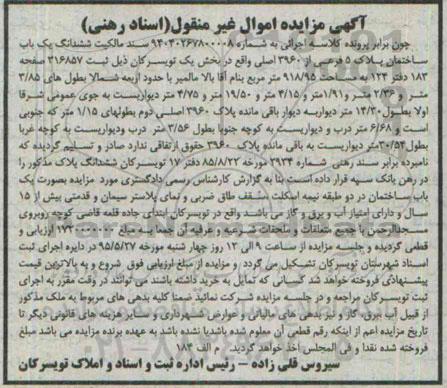 آگهی مزایده اموال غیر منقول(اسناد رهنی)
چون برابر پرونده کلاسه اجرائی به شماره ۹۴۰۴۰۲۶۷۸۰۰۰۰۸ سند مالکیت ششدانگ یک باب
ساختمان پلاک ۵ فرعی از ۳۹۶۰ اصلی واقع در بخش یک تویسرکان ذیل ثبت ۳۱۶۸۵۷ صفحه
۱۸۳ دفتر ۱۲۴ به مساحت ۹۱۸/۹۵ متر مربع بنام آقا بالا مالمیر با حدود اربعه شمالا بطول های ۳/۸۵
متر و ۲/۳۶ متر و ۱/۹۱متر و ۴/۱۵ متر و ۱۹/۵۰ متر و ۴/۷۵ متر دیواریست به جوی عمومی شرقا
اولا بطول ۱۴/۳۰ متر دیواریه دیوار باقی مانده پلاک ۳۹۶۰ اصلی دوم بطولهای ۱/۱۵ متر که جنوبی
است و ۶/۶۸ متر درب و دیواریست به کوچه جنوبا بطول ۳/۵۶ متر درب ودیواریست به کوچه غربا
بطول ۳۰/۵۴متر دیواریست به باقی مانده پلاک ۳۹۶۰ حقوق ارتفاقی ندارد صادر و تسلیم گردیده که
نامبرده برابر سند رهنی شماره ۲۹۳۴ مورخه ۸۵/۸/۲۲ دفتر ۱۷ تویسرکان ششدانگ پلاک مذکور را
در رهن بانک سپه قرار داده است بنا به گزارش کارشناس رسمی دادگستری مورد مزایده بصورت یک
باب ساختمان در دو طبقه نیمه اسکلت سقف طاق ضربی و نمای پلاستر سیمان و قدمتی بیش از ۱۵
سال و دارای امتیاز آب و برق و گاز می باشد واقع در تویسرکان ابتدای جاده قلعه قاضی کوچه روبروی
مسجدالرحمن با جمیع متعلقات و ملحقات شرعیه و عرفیه آن جمعا به مبلغ ارزیابی و
قطعی گردیده و جلسه مزایده از ساعت ۹ الی ۱۲ روز چهار شنبه مورخه ۹۵/۵/۲۷ در دایره اجرای ثبت
اسناد شهرستان تویسرکان تشکیل می گردد و مزایده از مبلغ ارزیابی فوق شروع و به بالاترین قیمت
پیشنهادی فروخته خواهد شد کسانی که تمایل به خرید داشته باشند می توانند در وقت مقرر به اجرای
ثبت تویسرکان مراجعه و در جلسه مزایده شرکت نمائید ضمنا کلیه بدهی های مربوط به ملک مذکور
از قبیل آب برق، گاز و نیز بدهی های مالیاتی و عوارض شهرداری و سایر هزینه های قانونی دیگر تا
تاریخ مزایده اعم از اینکه رقم قطعی آن معلوم شده باشدیا نشده باشد به عهده برنده مزایده می باشد مبلغ
فروخته شده نقدا و فی المجلس اخذ خواهد گردید/ م الف ۱۸۳
سیروس قلی زاده – رئیس اداره ثبت و اسناد و املاک تویسرکان